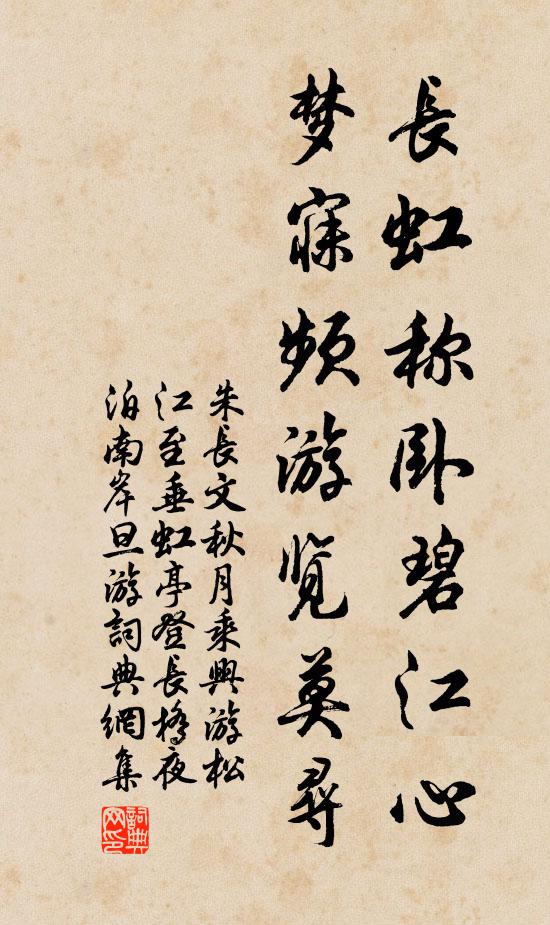 長虹称卧碧江心
梦寐頻游览莫尋
朱長文秋月乘興游松
江至垂虹亭登長橋夜
泊南岸旦游詞典網集
詞典网印